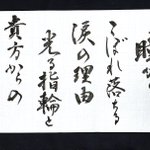 こぼれ落ちる
涙の理由
光る指輪と
貴方からの